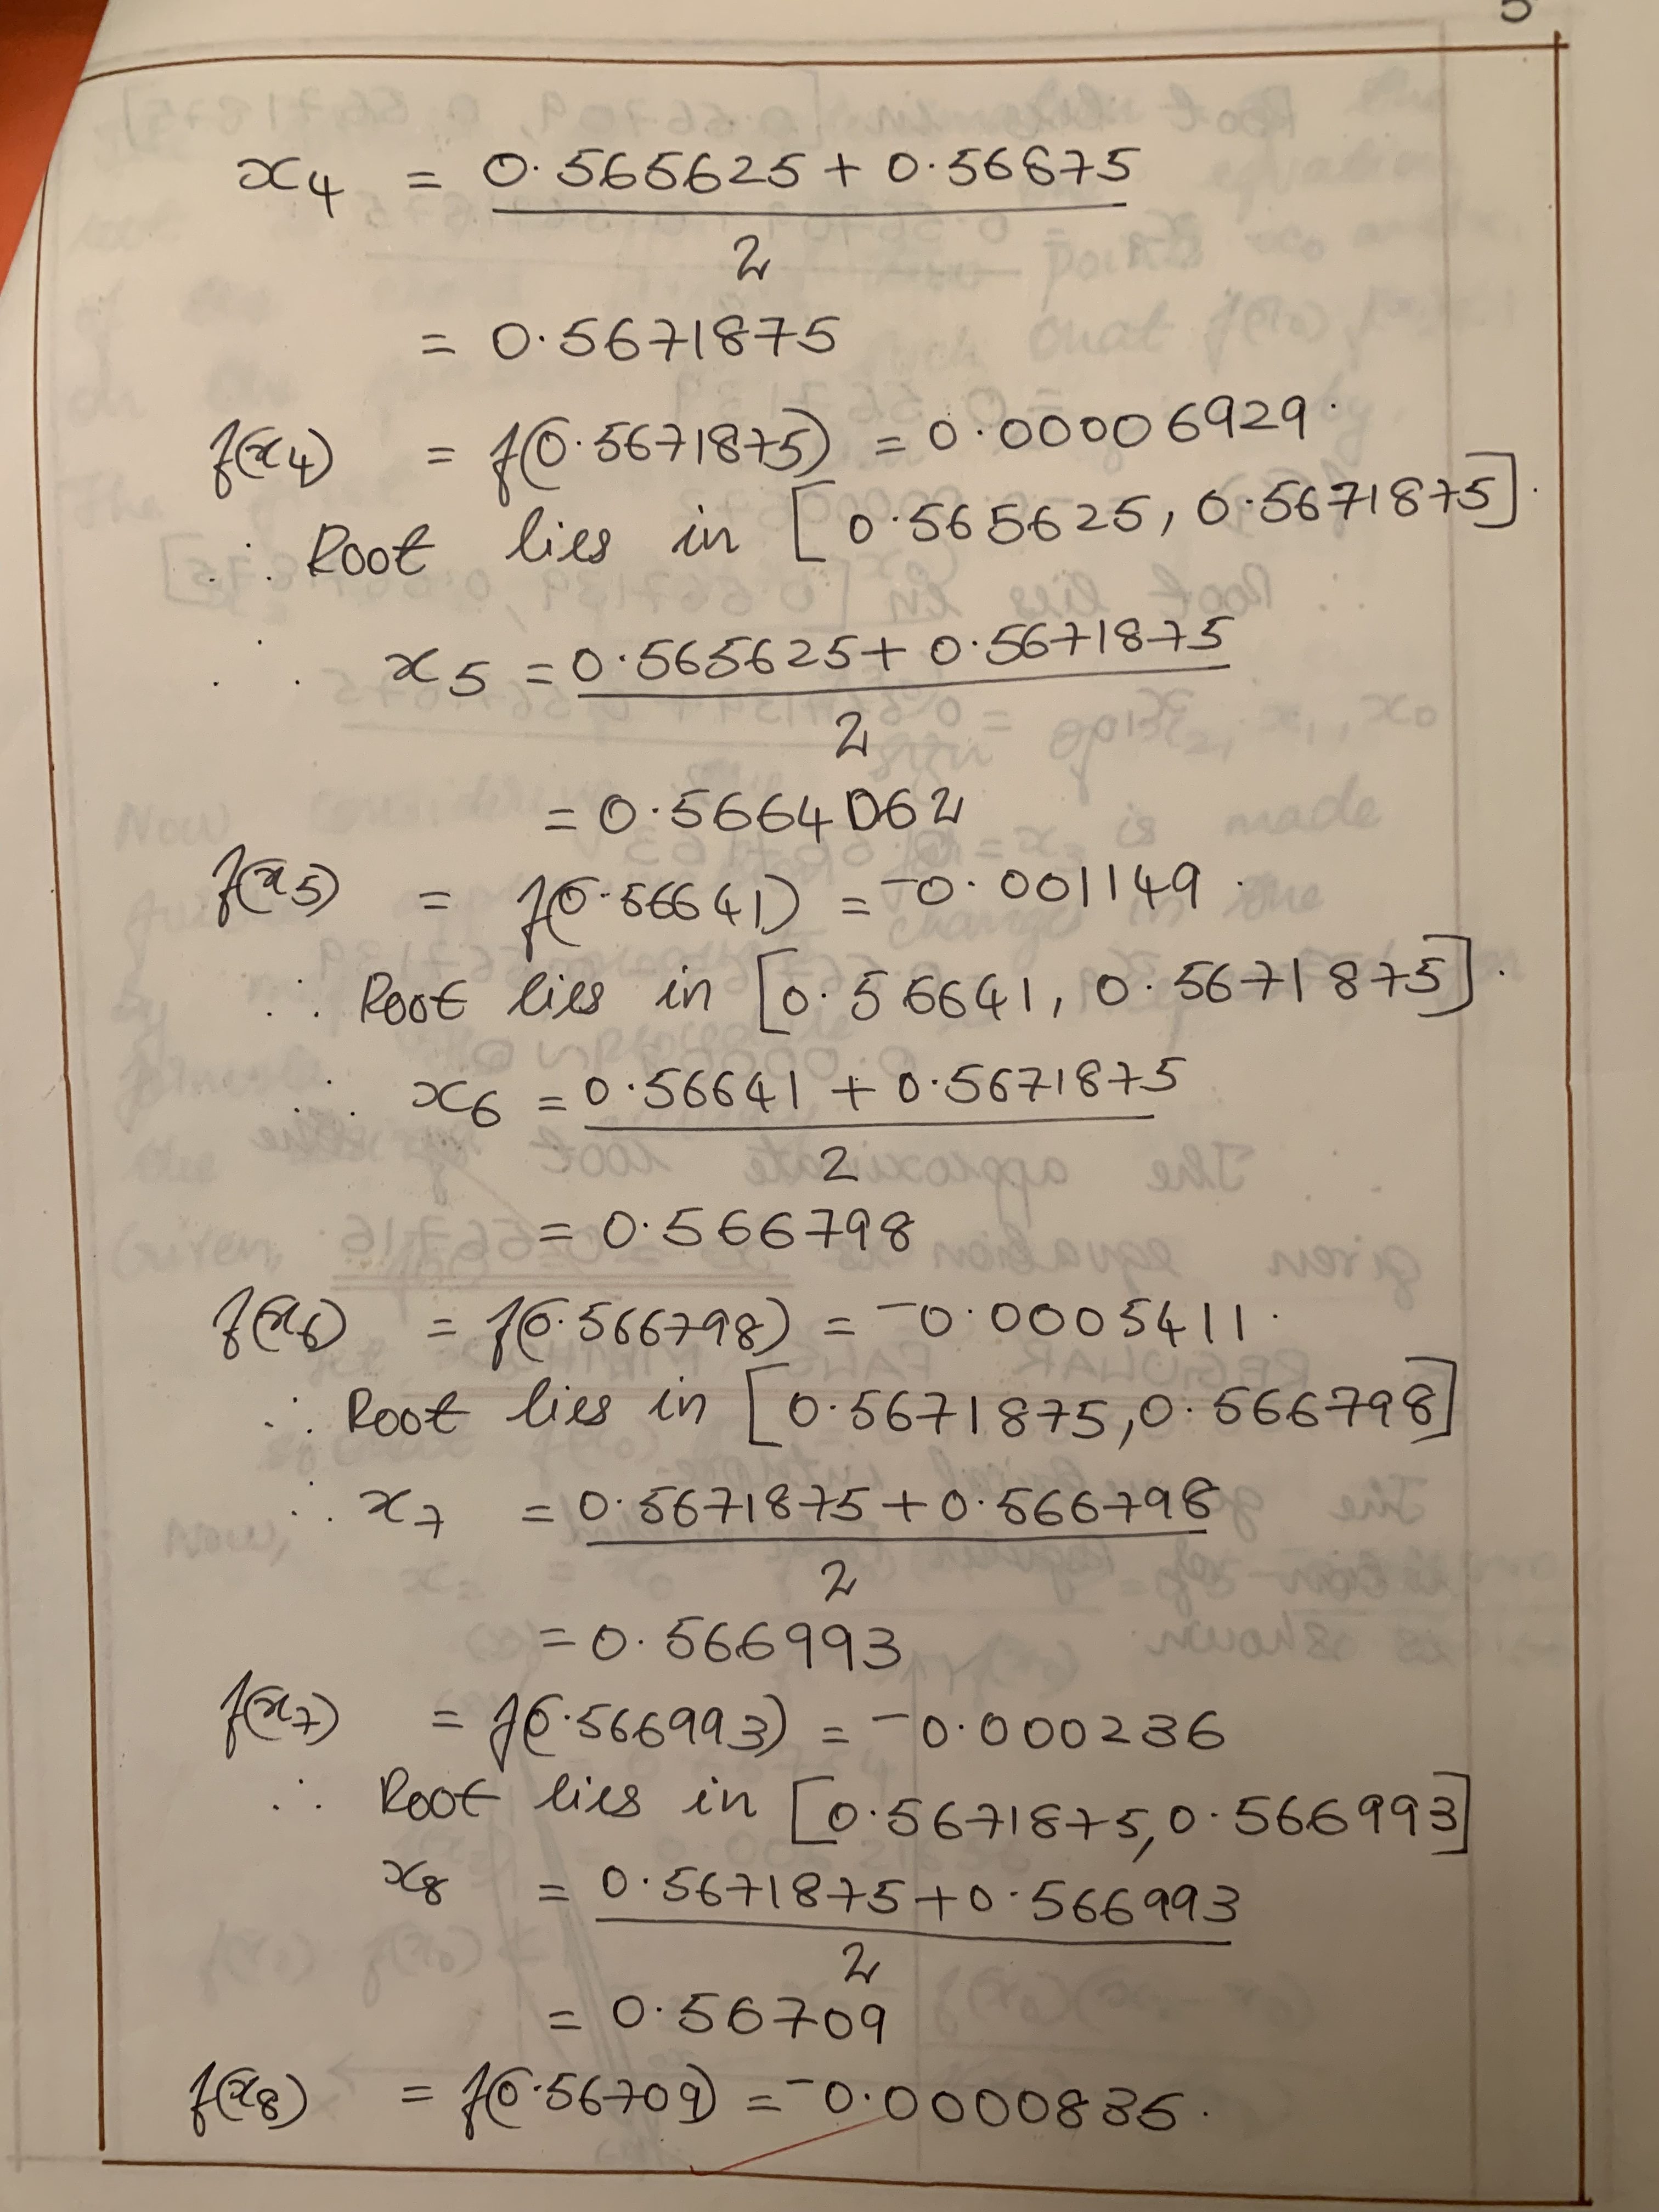 5
x₄ = 0.565625 + 0.56875
2
= 0.5671875
f(x₄) = f(0.5671875) = 0.00006929.
∴ Root lies in [0.565625, 0.5671875].
∴ x₅ = 0.565625 + 0.5671875
2
= 0.5664062
f(x₅) = f(0.56641) = -0.001149.
∴ Root lies in [0.56641, 0.5671875].
∴ x₆ = 0.56641 + 0.5671875
2
= 0.566798
f(x₆) = f(0.566798) = -0.0005411.
∴ Root lies in [0.5671875, 0.566798]
∴ x₇ = 0.5671875 + 0.566798
2
= 0.566993
f(x₇) = f(0.566993) = -0.000236
∴ Root lies in [0.5671875, 0.566993]
x₈ = 0.5671875 + 0.566993
2
= 0.56709
f(x₈) = f(0.56709) = -0.0000836.